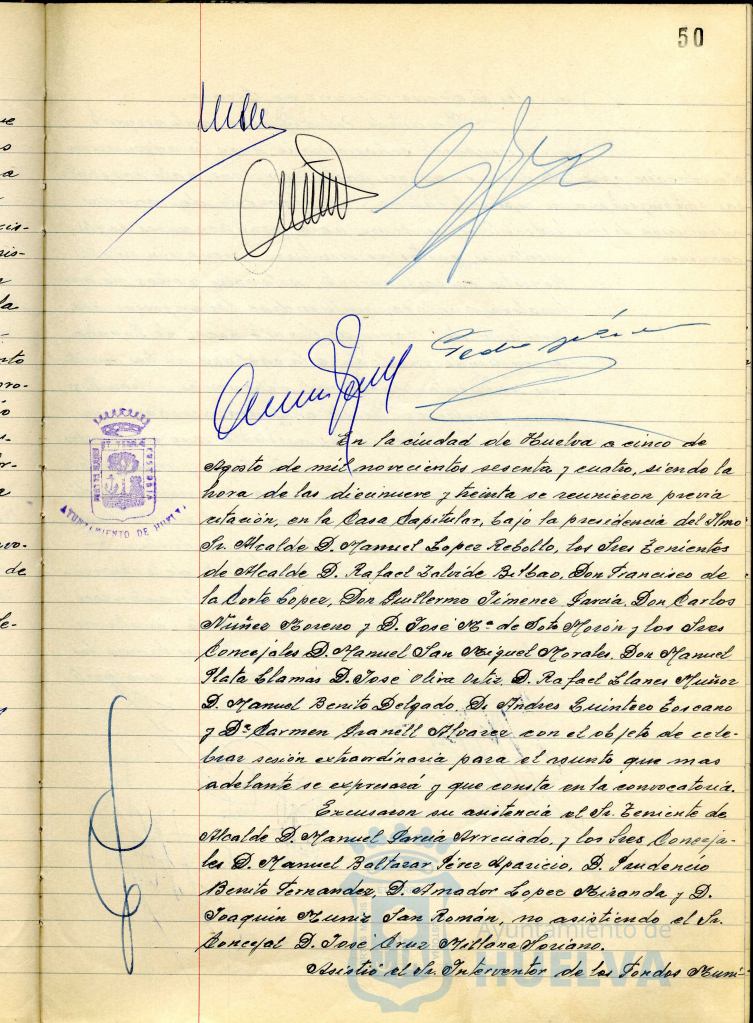 50
Pedro
En la ciudad de Huelva a cinco de
Agosto de mil novecientos sesenta y cuatro, siendo la
hora de las diecinueve y treinta se reunieron previa
citación, en la Casa Capitular, bajo la presidencia del Ilmo
Sr. Alcalde D. Manuel Lopez Rebollo, los Sres Tenientes
de Alcalde D. Rafael Zalvide Bilbao, Don Francisco de
la Corte Lopez, Don Guillermo Jimenez García, Don Carlos
Nuñez Moreno y D. José Mª de Soto Morón y los Sres
Concejales D. Manuel San Miguel Morales, Don Manuel
Plata Llamas D. José Oliva Ortiz, D. Rafael Llanes Muñoz
D. Manuel Benito Delgado, D. Andres Quintero Toscano
y Dª Carmen Granell Alvarez con el objeto de cele-
brar sesión extraordinaria para el asunto que mas
adelante se expresará y que consta en la convocatoria.
Excusaron su asistencia el Sr. Teniente de
Alcalde D. Manuel García Arreciado, y los Sres Conceja-
les D. Manuel Baltazar Pérez Aparicio, D. Prudencio
Benito Fernandez, D. Amador Lopez Miranda y D.
Joaquín Muniz San Román, no asistiendo el Sr.
Concejal D. José Cruz Millana Soriano.
Asistió el Sr. Interventor de los Fondos Muni-
AYUNTAMIENTO DE HUELVA
Ayuntamiento de
HUELVA